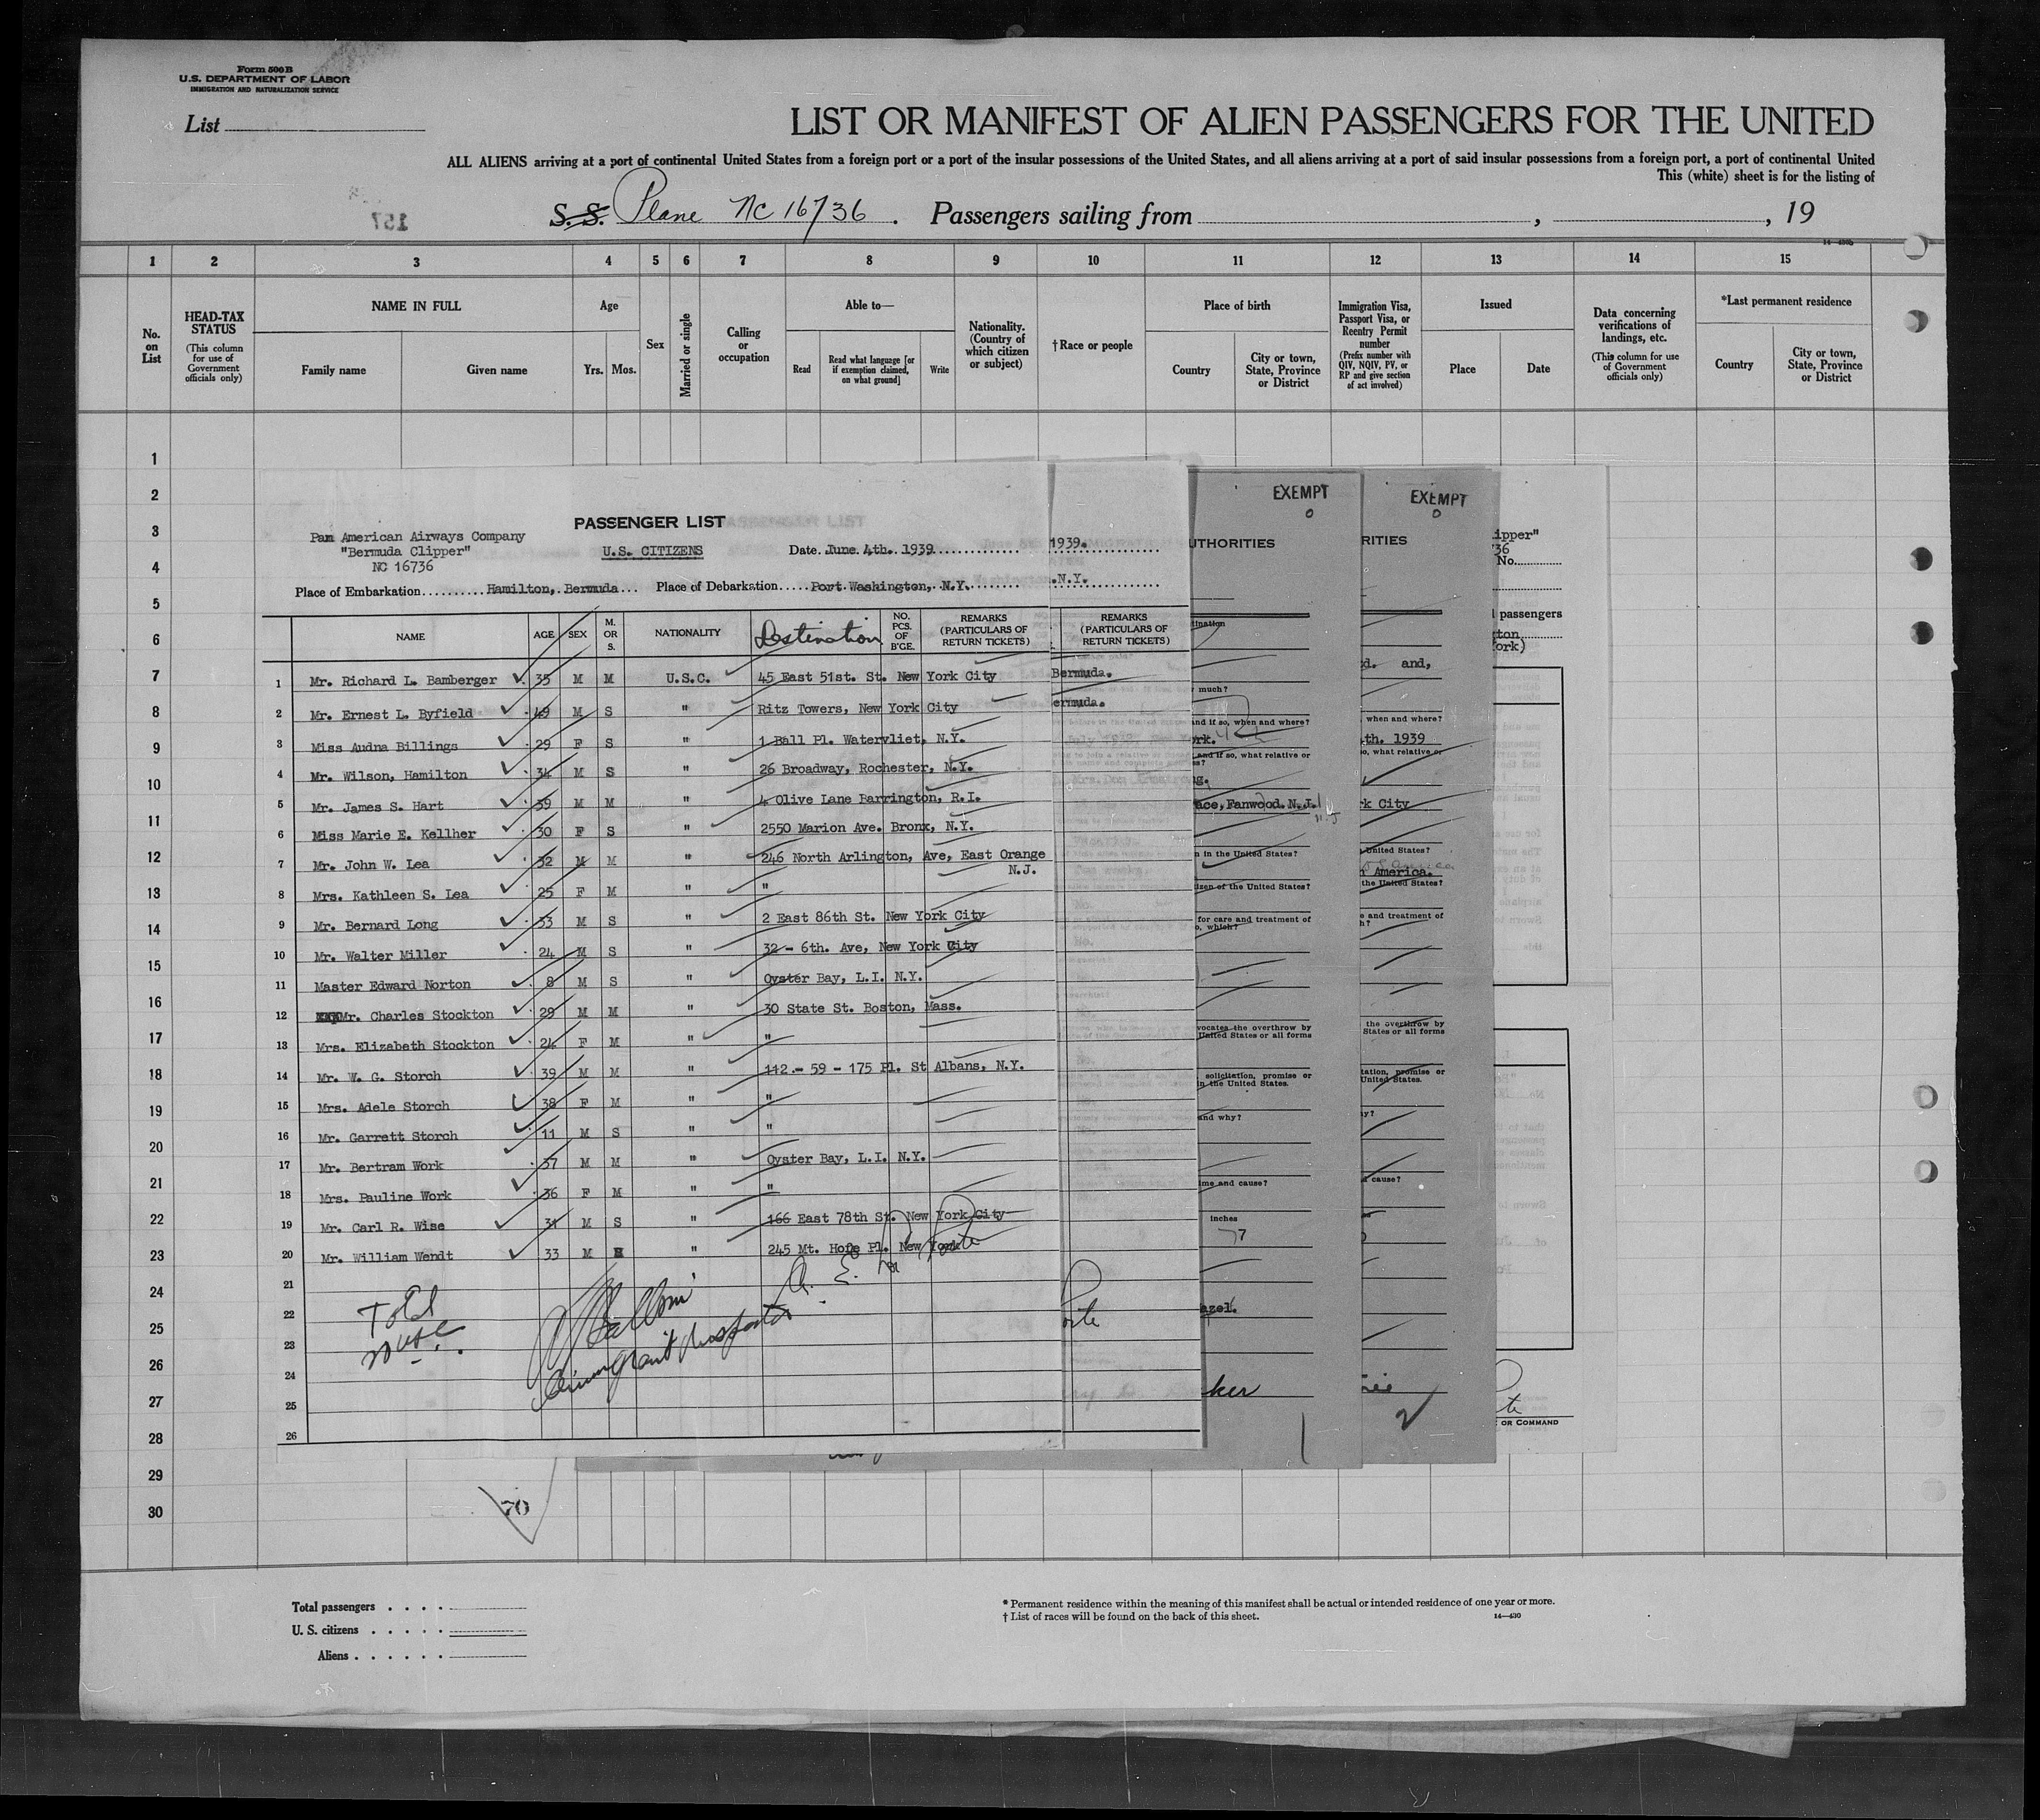 Form 500 B
U.S. DEPARTMENT OF LABOR
IMMIGRATION AND NATURALIZATION SERVICE
List
LIST OR MANIFEST OF ALIEN PASSENGERS FOR THE UNITED
ALL ALIENS arriving at a port of continental United States from a foreign port or a port of the insular possessions of the United States, and all aliens arriving at a port of said insular possessions from a foreign port, a port of continental United
This (white) sheet is for the listing of
157
S.S. Plane NC 16736. Passengers sailing from , , 19
1 2 3 4 5 6 7 8 9 10 11 12 13 14 15
No. on List
HEAD-TAX STATUS (This column for use of Government officials only)
NAME IN FULL Family name Given name
Age Yrs. Mos.
Sex
Married or single
Calling or occupation
Able to— Read Read what language [or if exemption claimed, on what ground] Write
Nationality. (Country of which citizen or subject)
†Race or people
Place of birth Country City or town, State, Province or District
Immigration Visa, Passport Visa, or Reentry Permit number (Prefix number with QIV, NQIV, PV, or RP and give section of act involved)
Issued Place Date
Data concerning verifications of landings, etc. (This column for use of Government officials only)
*Last permanent residence Country City or town, State, Province or District
1
2
3
4
5
6
7
8
9
10
11
12
13
14
15
16
17
18
19
20
21
22
23
24
25
26
27
28
29
30
PASSENGER LIST
Pam American Airways Company
"Bermuda Clipper"
NC 16736
U.S. CITIZENS
Date. June 4th. 1939
Place of Embarkation Hamilton, Bermuda Place of Debarkation Port Washington, N.Y.
NAME AGE SEX M. OR S. NATIONALITY Destination NO. PCS. OF B'GE. REMARKS (PARTICULARS OF RETURN TICKETS)
1 Mr. Richard L. Bamberger 35 M M U.S.C. 45 East 51st. St. New York City
2 Mr. Ernest L. Byfield 49 M S " Ritz Towers, New York City
3 Miss Audna Billings 29 F S " 1 Ball Pl. Watervliet, N.Y.
4 Mr. Wilson, Hamilton 34 M S " 26 Broadway, Rochester, N.Y.
5 Mr. James S. Hart 39 M M " 4 Olive Lane Barrington, R.I.
6 Miss Marie E. Kellher 30 F S " 2550 Marion Ave. Bronx, N.Y.
7 Mr. John W. Lea 32 M M " 246 North Arlington, Ave, East Orange
N.J.
8 Mrs. Kathleen S. Lea 25 F M " "
9 Mr. Bernard Long 33 M S " 2 East 86th St. New York City
10 Mr. Walter Miller 24 M S " 32 - 6th. Ave, New York City
11 Master Edward Norton 8 M S " Oyster Bay, L.I. N.Y.
12 Mr. Charles Stockton 29 M M " 30 State St. Boston, Mass.
13 Mrs. Elizabeth Stockton 24 F M " "
14 Mr. W. G. Storch 39 M M " 112.- 59 - 175 Pl. St Albans, N.Y.
15 Mrs. Adele Storch 38 F M " "
16 Mr. Garrett Storch 11 M S " "
17 Mr. Bertram Work 37 M M " Oyster Bay, L.I. N.Y.
18 Mrs. Pauline Work 36 F M " "
19 Mr. Carl R. Wise 31 M S " 166 East 78th St. New York City
20 Mr. William Wendt 33 M " 245 Mt. Hope Pl. New York
21
22
23
24
25
26
Total
Immigrant Inspector
1939.
.N.Y.
REMARKS (PARTICULARS OF RETURN TICKETS)
Bermuda.
ermuda.
EXEMPT
UTHORITIES
much?
and if so, when and where?
rk.
and if so, what relative or
ace, Fanwood. N.J.
n in the United States?
izen of the United States?
for care and treatment of
o, which?
vocates the overthrow by
United States or all forms
solicitation, promise or
in the United States.
and why?
ime and cause?
inches
7
azel.
ker
1
EXEMPT
RITIES
d. and,
when and where?
4th. 1939
so, what relative or
rk City
United States?
n America.
the United States?
e and treatment of
h?
the overthrow by
States or all forms
tation, promise or
United States.
y?
cause?
2
ipper"
36
No.
passengers
ton,
ork)
OR COMMAND
70
Total passengers
U. S. citizens
Aliens
* Permanent residence within the meaning of this manifest shall be actual or intended residence of one year or more.
† List of races will be found on the back of this sheet.
14—430